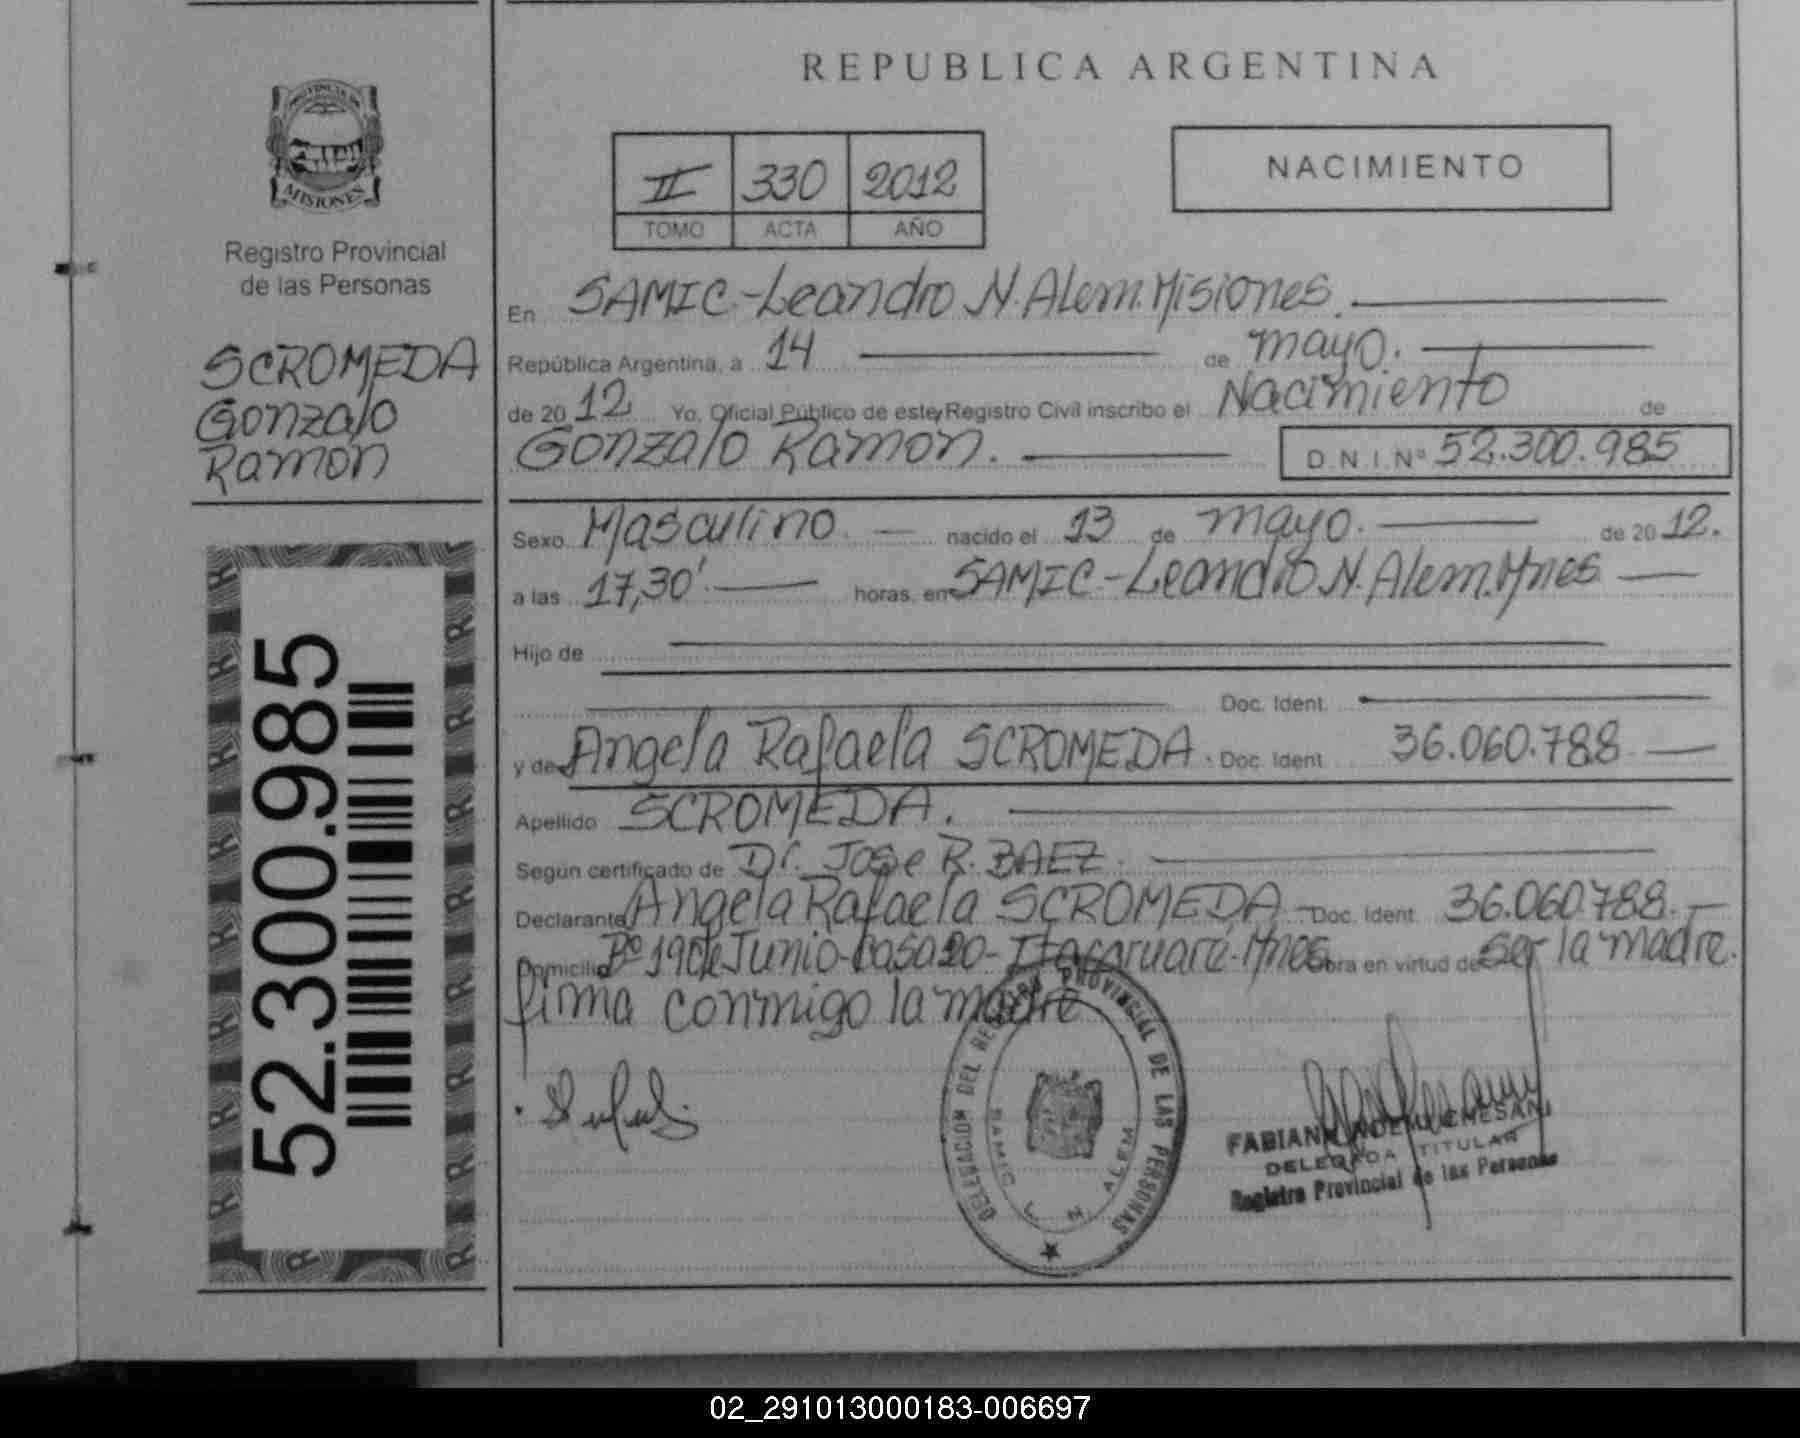 REPUBLICA ARGENTINA
PROVINCIA DE
MISIONES
Registro Provincial
de las Personas
SCROMEDA
Gonzalo
Ramon
52.300.985
II 330 2012
TOMO ACTA AÑO
NACIMIENTO
En SAMIC-Leandro N. Alem. Misiones.
República Argentina, a 14 de mayo.
de 2012 Yo, Oficial Público de este Registro Civil inscribo el Nacimiento de
Gonzalo Ramon. D.N.I. Nº 52.300.985
Sexo Masculino nacido el 13 de mayo. de 2012.
a las 17,30' horas, en SAMIC-Leandro N. Alem. Mnes
Hijo de
Doc. Ident.
y de Angela Rafaela SCROMEDA. Doc. Ident. 36.060.788
Apellido SCROMEDA.
Según certificado de Dr. Jose R. BAEZ.
Declarante Angela Rafaela SCROMEDA Doc. Ident. 36.060.788.
Domicilio Bº 19 de Junio-Casa 20- Itacaruaré-Mnes Obra en virtud de Ser la madre.
firma conmigo la madre
DELEGACION DEL REGISTRO PROVINCIAL DE LAS PERSONAS
SAMIC L N ALEM
DELEGADA TITULAR
Registro Provincial de las Personas
02_291013000183-006697